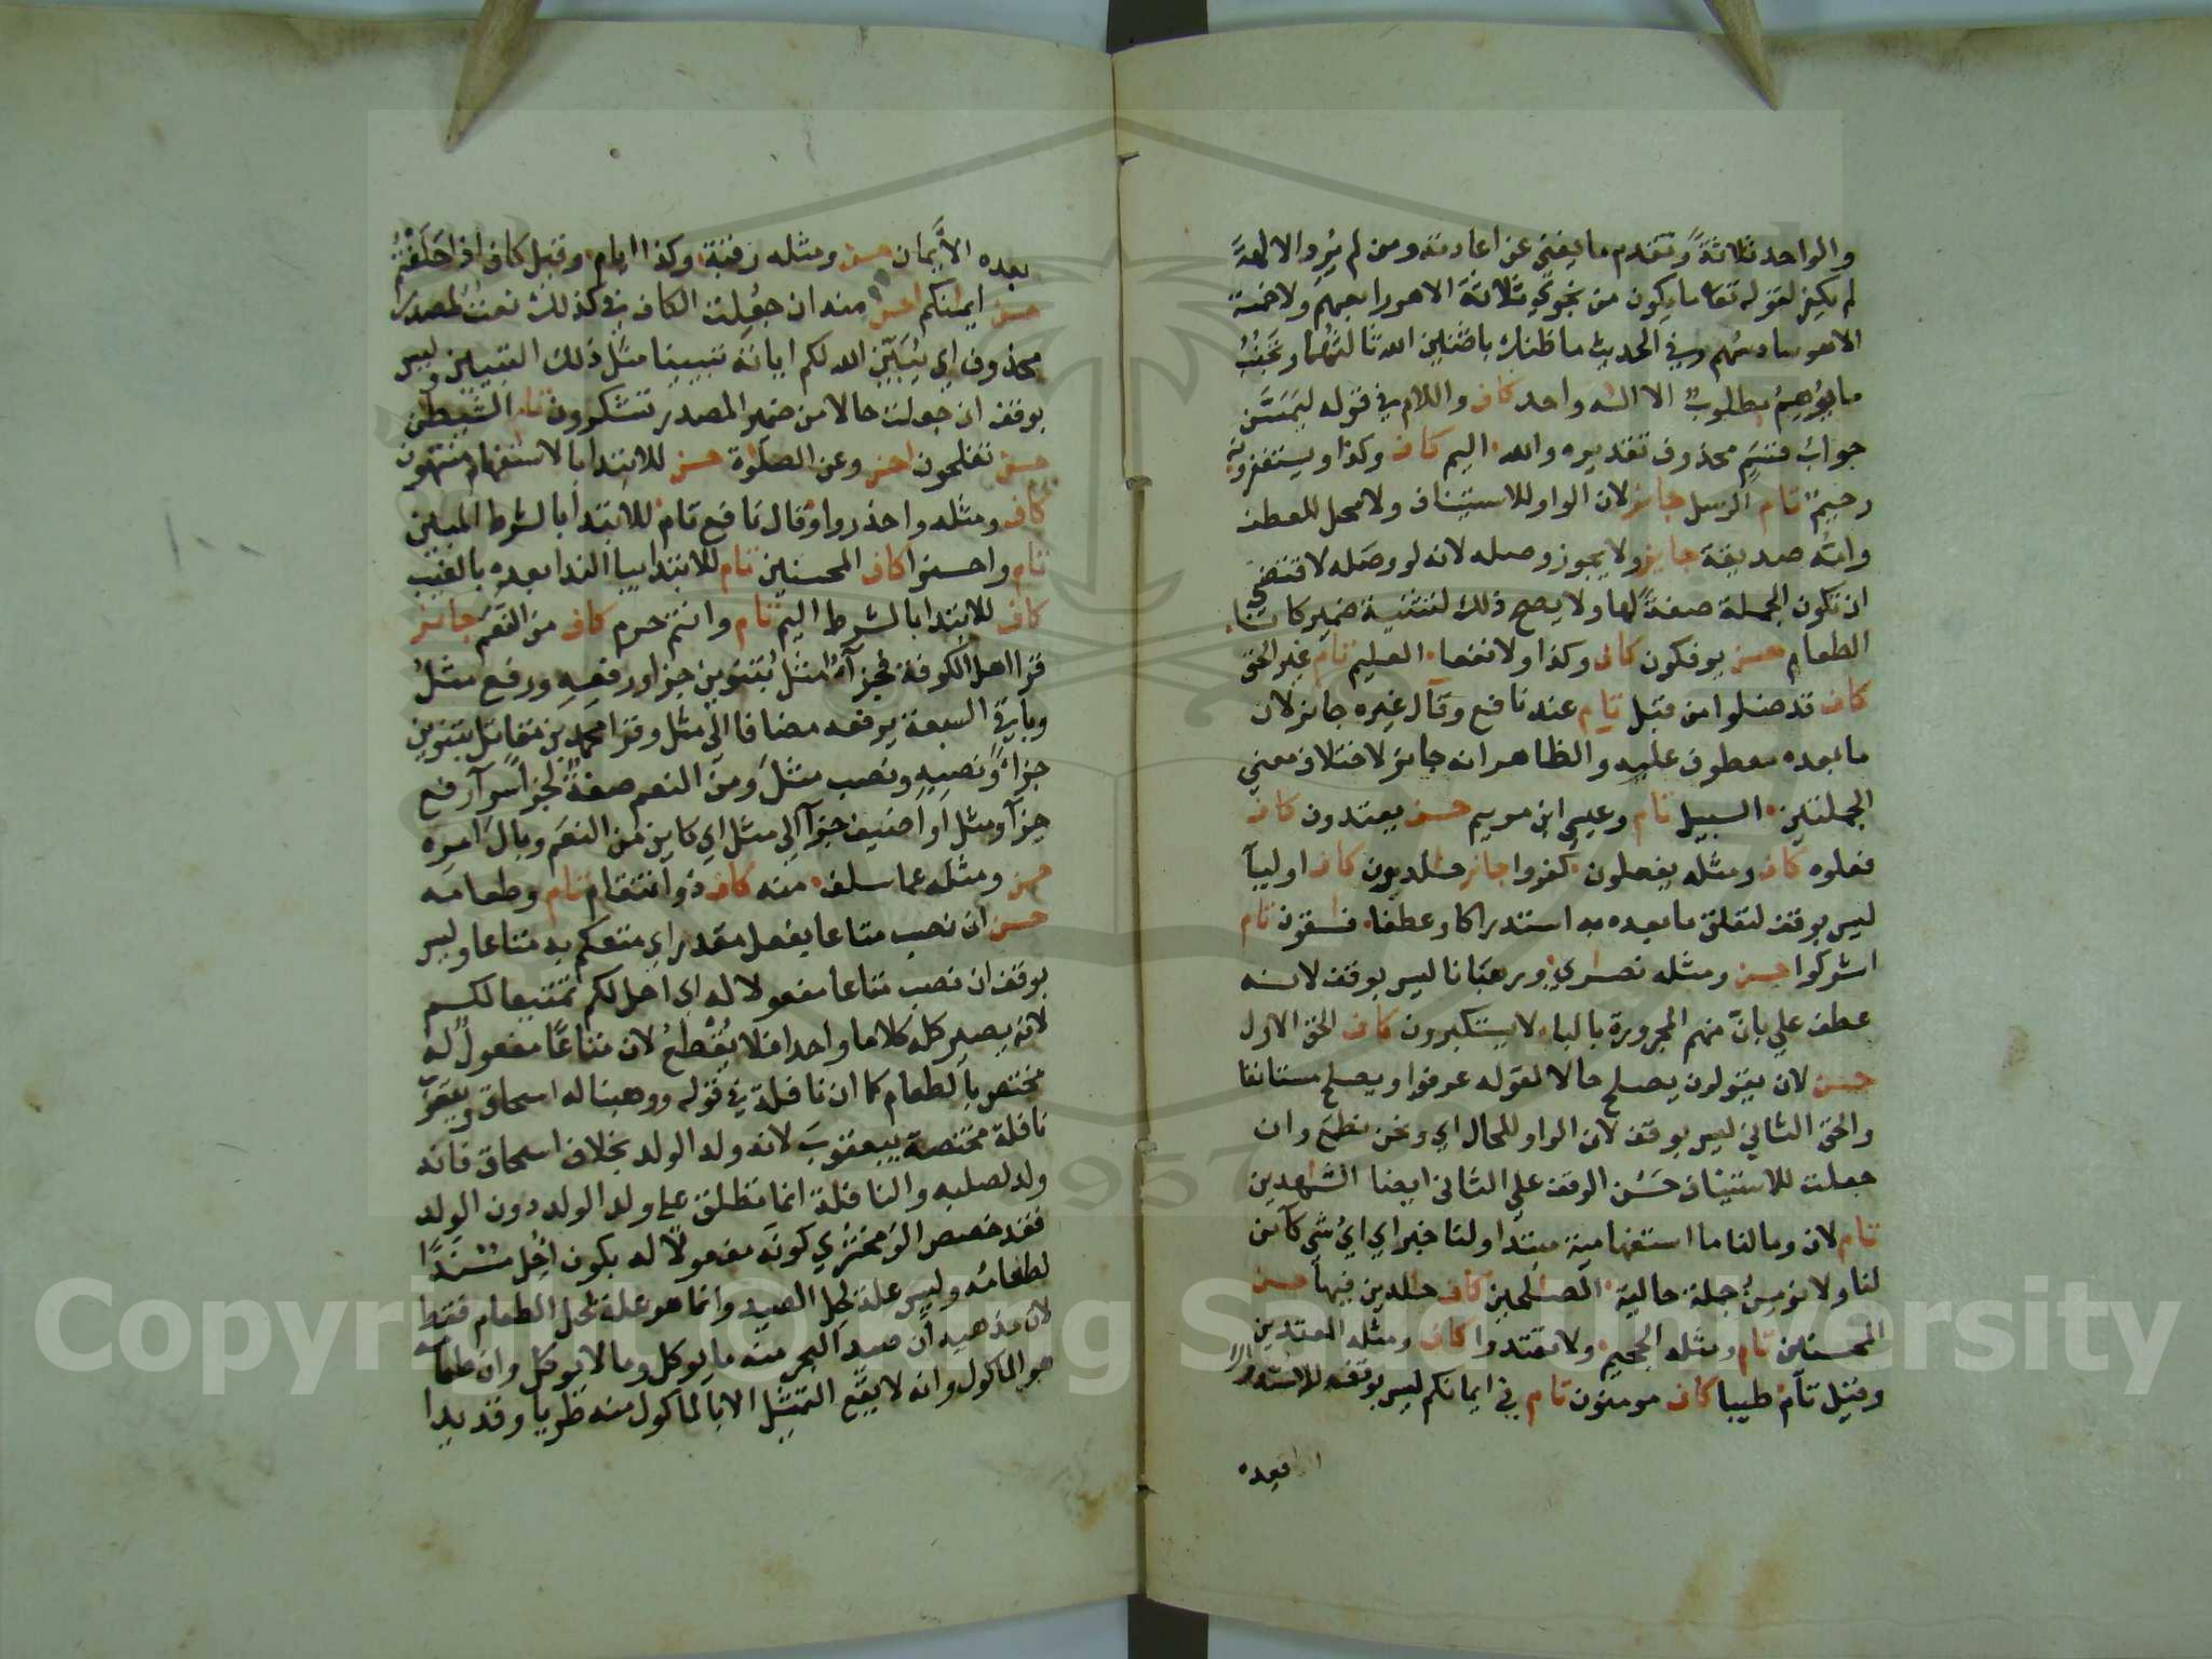 والواحد ثلاثةً وتقدم ما يغني عن اعادته ومن لم يُرِد الالهةَ
لم يكفر لقوله تعا ما يكون من نجوي ثلاثة الا هو رابعهم ولا خمسة
الا هو سادسهم وفي الحديث ما ظنك باثنين الله ثالثهما وتجنُّبُ
ما يوهم مطلوب الا اله واحد كاف واللام في قوله ليمسن
جواب قسم محذوف تقديره والله اليم كاف وكذا ويستغفرونه
رحيم تام الرسل جايز لان الواو للاستيناف ولا محل للعطف
وامه صديقة جايز ولا يجوز وصله لانه لو وصله لاقتضي
ان تكون الجملة صفة لها ولا يصح ذلك لتثنية ضمير كانا
الطعام حسن يوفكون كاف وكذا ولا نفعا العليم تام غير الحق
كاف قد ضلوا من قبل تام عند نافع وقال غيره جايز لان
ما بعده معطوف عليه والظاهر انه جايز لاختلاف معني
الجملتين السبيل تام وعيسي ابن مريم حسن يعتدون كاف
فعلوه كاف ومثله يفعلون كفروا جايز خلدون كاف اوليآ
ليس بوقف لتعلق ما بعده به استدراكا وعطفا فسقون تام
اشركوا حسن ومثله نصري ورهبانا ليس بوقف لانه
عطف علي بانّ منهم المجرورة بالباء لا يستكبرون كاف الحق الاول
حسن لان يقولون يصلح حالا لقوله عرفوا ويصلح مستانفا
والحق الثاني ليس بوقف لان الواو للحال اي ونحن نطمع وان
جعلت للاستيناف حَسُن الوقف علي الثاني ايضا الشهدين
تام لان وما لنا ما استفهامية مبتدا ولنا خبر اي اي شي كاين
لنا ولا نومن جملة حالية الصلحين كاف خلدين فيها حسن
المحسنين تام ومثله الجحيم ولا تعتدوا كاف ومثله المعتدين
وقيل تام طيبا كاف مومنون تام في ايمانكم ليس بوقف للاستدراك
بعده
بعده الايمان حسن ومثله رقبة وكذا ايام وقيل كاف اذا حلفتم
حسن ايمنكم احسن منه ان جعلت الكاف في كذلك نعت لمصدر
محذوف اي يبين الله لكم اياته تبيينا مثل ذلك التبيين وليس
بوقف ان جعلت حالا من ضمير المصدر تشكرون تام الشيطن
حسن تفلحون احسن وعن الصلوة حسن للابتدا بالاستفهام منتهون
كاف ومثله واحذروا وقال نافع تام للابتدا بالشرط المبين
تام واحسنوا كاف المحسنين تام للابتدا بيا الندا بعده بالغيب
كاف للابتدا بالشرط اليم تام وانتم حرم كاف من النعم جايز
قرا اهل الكوفة فجزآء مثل بتنوين جزا ورفعه ورفع مثل
وباقي السبعة يرفعه مضافا الي مثل وقرا محمد بن مقاتل بتنوين
جزاء ونصبه ونصب مثل ومن النعم صفة لجزا سوآ رفع
جزآ ومثل او اضيف جزآ الي مثل اي كاين من النعم وبال امره
حسن ومثله عما سلف منه كاف ذو انتقام تام وطعامه
حسن ان نصب متاعا بفعل مقدر اي متعكم به متاعا وليس
بوقف ان نصب متاعا مفعولا له اي احل لكم تمتيعا لكم
لانه يصير كله كلاما واحدا فلا يُقْطع لان متاعًا مفعولٌ له
مختص بالطعام كما ان نافلة في قوله ووهبنا له اسحاق ويعقوب
نافلة مختصة بيعقوب لانه ولد الولد بخلاف اسحاق فانه
ولد لصلبه والنافلة انما تطلق علي ولد الولد دون الولد
فقد خصص الزمخشري كونه مفعولا له بكون احل مسندا
لطعامه وليس علة لحل الصيد وانما هو علة لحل الطعام فقط
لان مذهبه ان صيد البحر منه ما يوكل وما لا يوكل وان طعامه
هو الماكول وانه لا يقع التمثل الا بالماكول منه طريا وقديدا